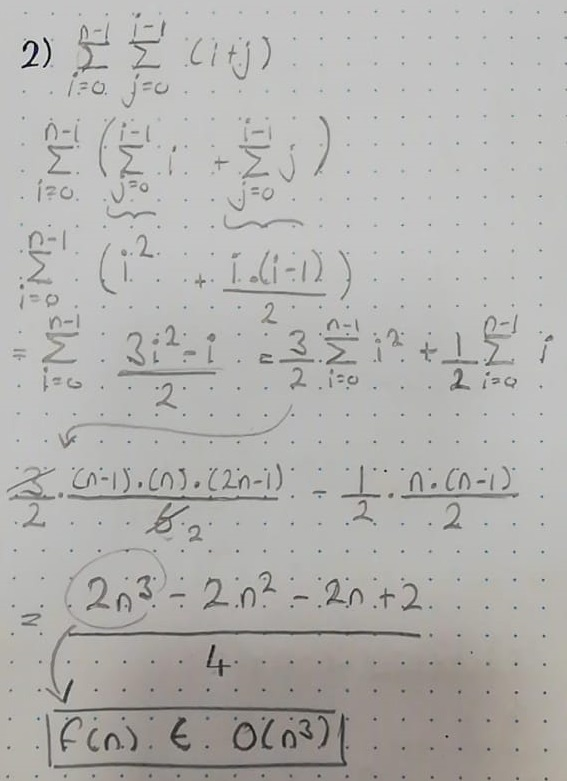 2) ∑_{i=0}^{n-1} ∑_{j=0}^{i-1} (i+j)
∑_{i=0}^{n-1} ( ∑_{j=0}^{i-1} i + ∑_{j=0}^{i-1} j )
∑_{i=0}^{n-1} ( i² + i.(i-1)/2 )
= ∑_{i=0}^{n-1} (3i² - i)/2 = 3/2 ∑_{i=0}^{n-1} i² + 1/2 ∑_{i=0}^{n-1} i
3/2 . (n-1).(n).(2n-1)/6 2 - 1/2 . n.(n-1)/2
= (2n³ - 2n² - 2n + 2)/4
f(n) ∈ O(n³)